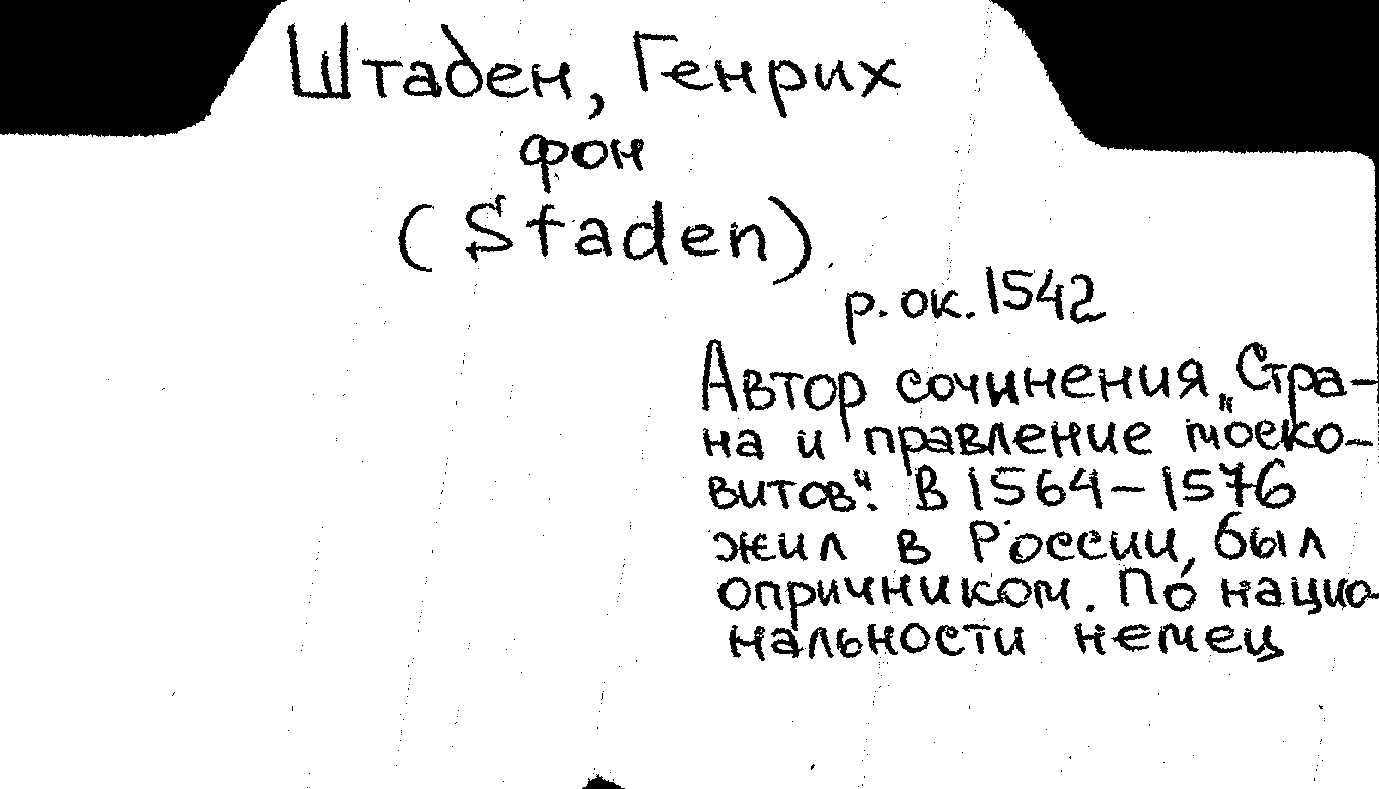 Штаден, Генрих
фон
(Staden)
р. ок. 1542
Автор сочинения „Стра-
на и правление моско-
витов“. В 1564–1576
жил в России, был
опричником. По нацио-
нальности немец